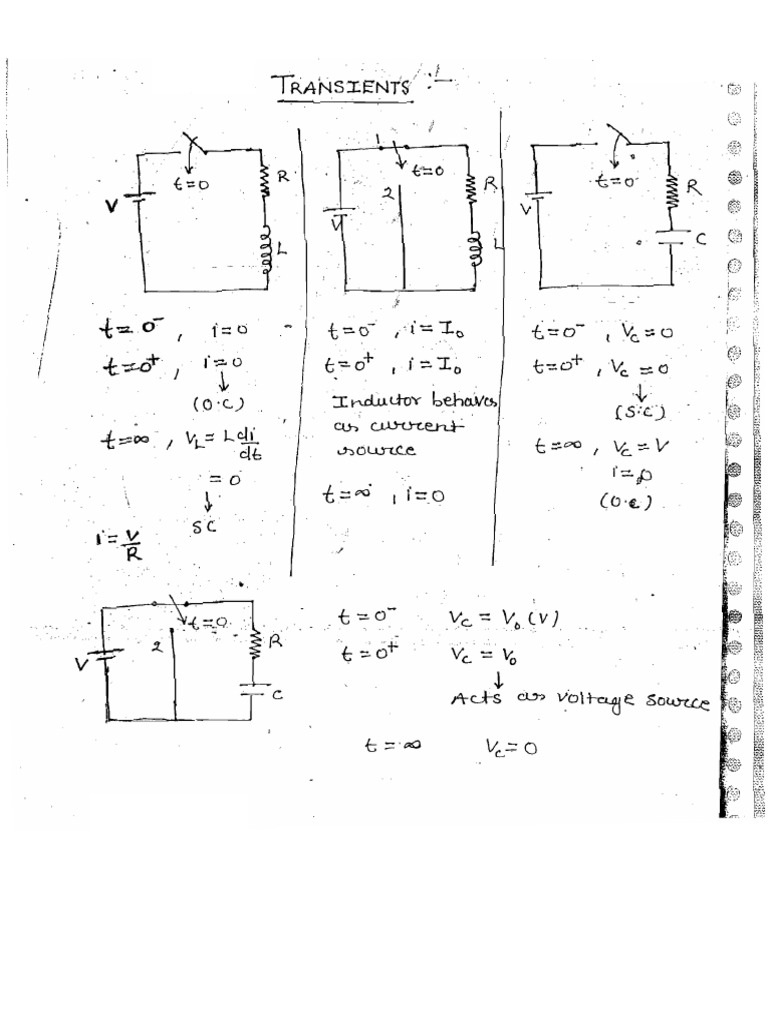 TRANSIENTS :-
t=0
R
L
V
t=0⁻ , i=0
t=0⁺ , i=0
↓
(O.C)
t=∞ , V_L = L di/dt
= 0
↓
SC
i = V/R
1
t=0
2
R
V
L
t=0⁻ , i=I₀
t=0⁺ , i=I₀
Inductor behaves
as current
source
t=∞ , i=0
t=0
R
V
C
t=0⁻ , V_C=0
t=0⁺ , V_C=0
↓
(S.C)
t=∞ , V_C=V
i=0
(O.C)
t=0
2
R
V
C
t=0⁻ V_C = V₀(V)
t=0⁺ V_C = V₀
↓
Acts as voltage source
t=∞ V_C=0